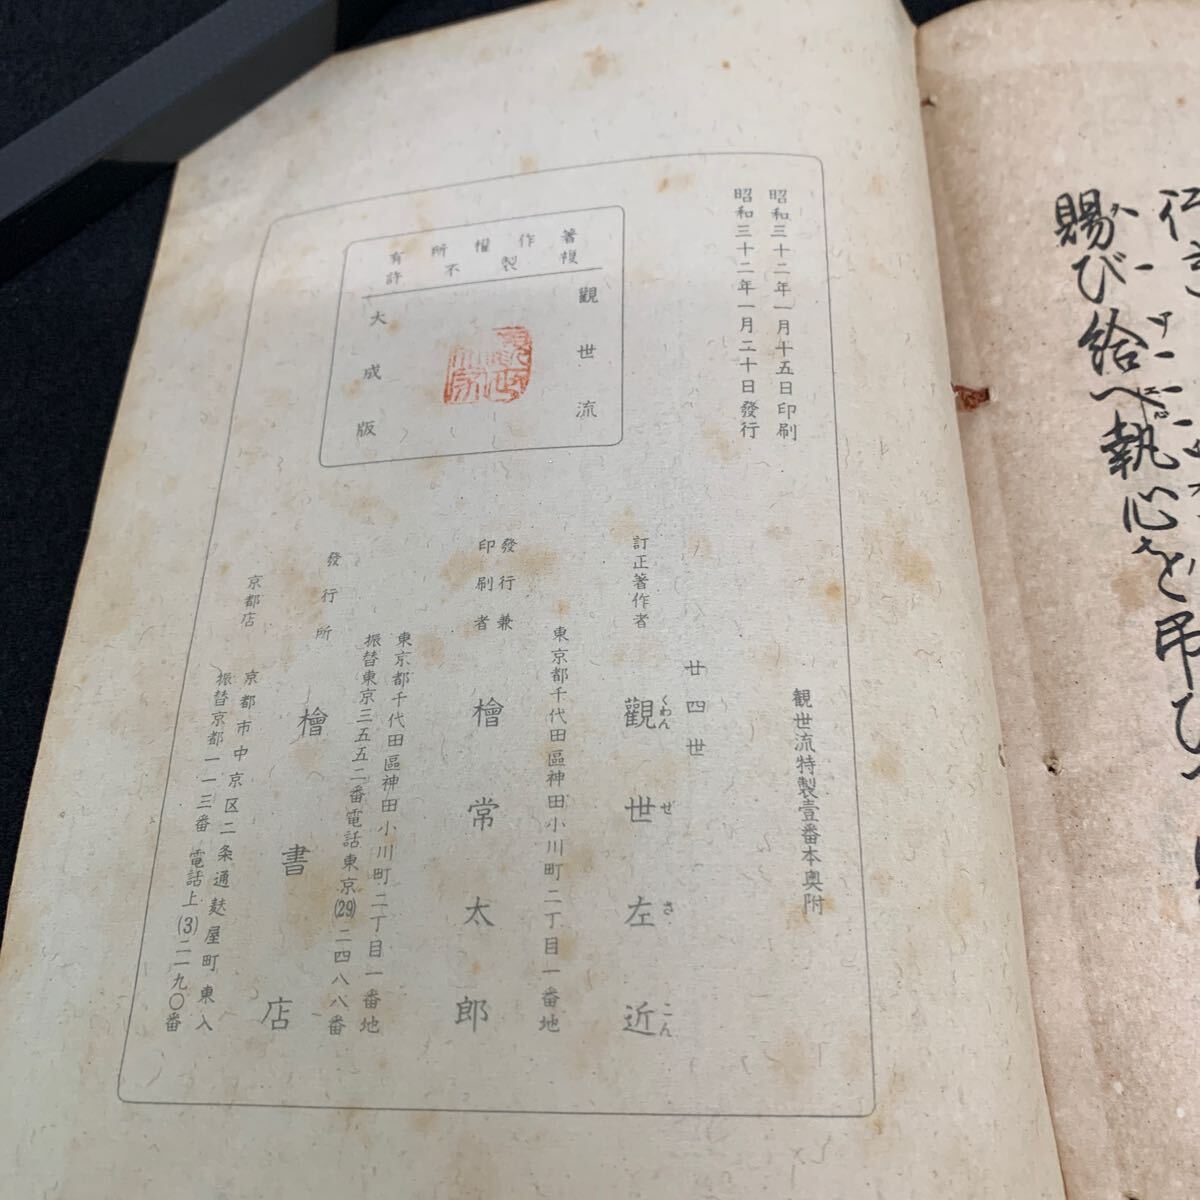 賜び給へ執心を弔ひ
昭和三十二年一月十五日印刷
昭和三十二年一月二十日發行
觀世流特製壹番本奥附
著作權所有
複製不許
觀世流
大成版
訂正著作者
廿四世
觀世左近
くわんぜさこん
東京都千代田區神田小川町二丁目一番地
發行兼
印刷者
檜常太郎
東京都千代田區神田小川町二丁目一番地
振替東京三五五二番電話東京(29)二四八八番
發行所
檜書店
京都店
京都市中京区二条通麸屋町東入
振替京都一一三番 電話上(3)二二九〇番